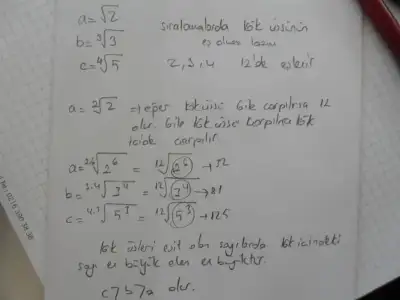 a = √2 sıralamalarda kök üssünün
b = ³√3 eş olması lazım
c = ⁴√5 2, 3, 4 12'de eşlenir
a = ²√2 ⇒ eğer kök üssü 6 ile çarpılırsa 12
olur. 6 ile kök üssü çarpılırsa kök
içide çarpılır
a = ²·⁶√2⁶ = ¹²√2⁶ → 32
b = ³·⁴√3⁴ = ¹²√3⁴ → 81
c = ⁴·³√5³ = ¹²√5³ → 125
kök üsleri eşit olan sayılarda kök içindeki
sayı en büyük olan en büyüktür.
c > b > a olur.